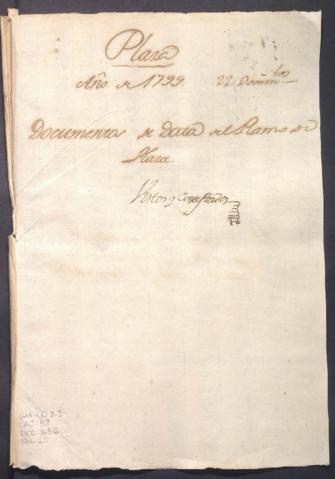 Plaza
Año de 1799. 22 Docum.tos
Documentos de Data del Ramo de
Plaza
Vistos y Confrontados